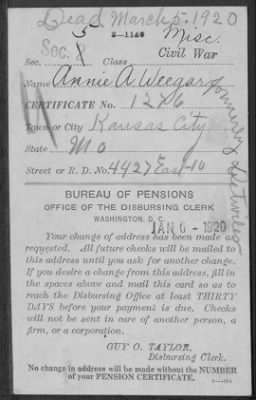 Dead March 5, 1920
5 3—1140 Misc.
Sec. 8
Sec. Class Civil War
Name Annie A. Weegar
formerly
CERTIFICATE No. 1276
Town or City Kansas City
State Mo
Street or R. D. No. 4427 E East 10
BUREAU OF PENSIONS
OFFICE OF THE DISBURSING CLERK
WASHINGTON, D. C.
JAN 6 - 1920
Your change of address has been made as
requested. All future checks will be mailed to
this address until you ask for another change.
If you desire a change from this address, fill in
the spaces above and mail this card so as to
reach the Disbursing Office at least THIRTY
DAYS before your payment is due. Checks
will not be sent in care of another person, a
firm, or a corporation.
GUY O. TAYLOR,
Disbursing Clerk.
No change in address will be made without the NUMBER
of your PENSION CERTIFICATE.